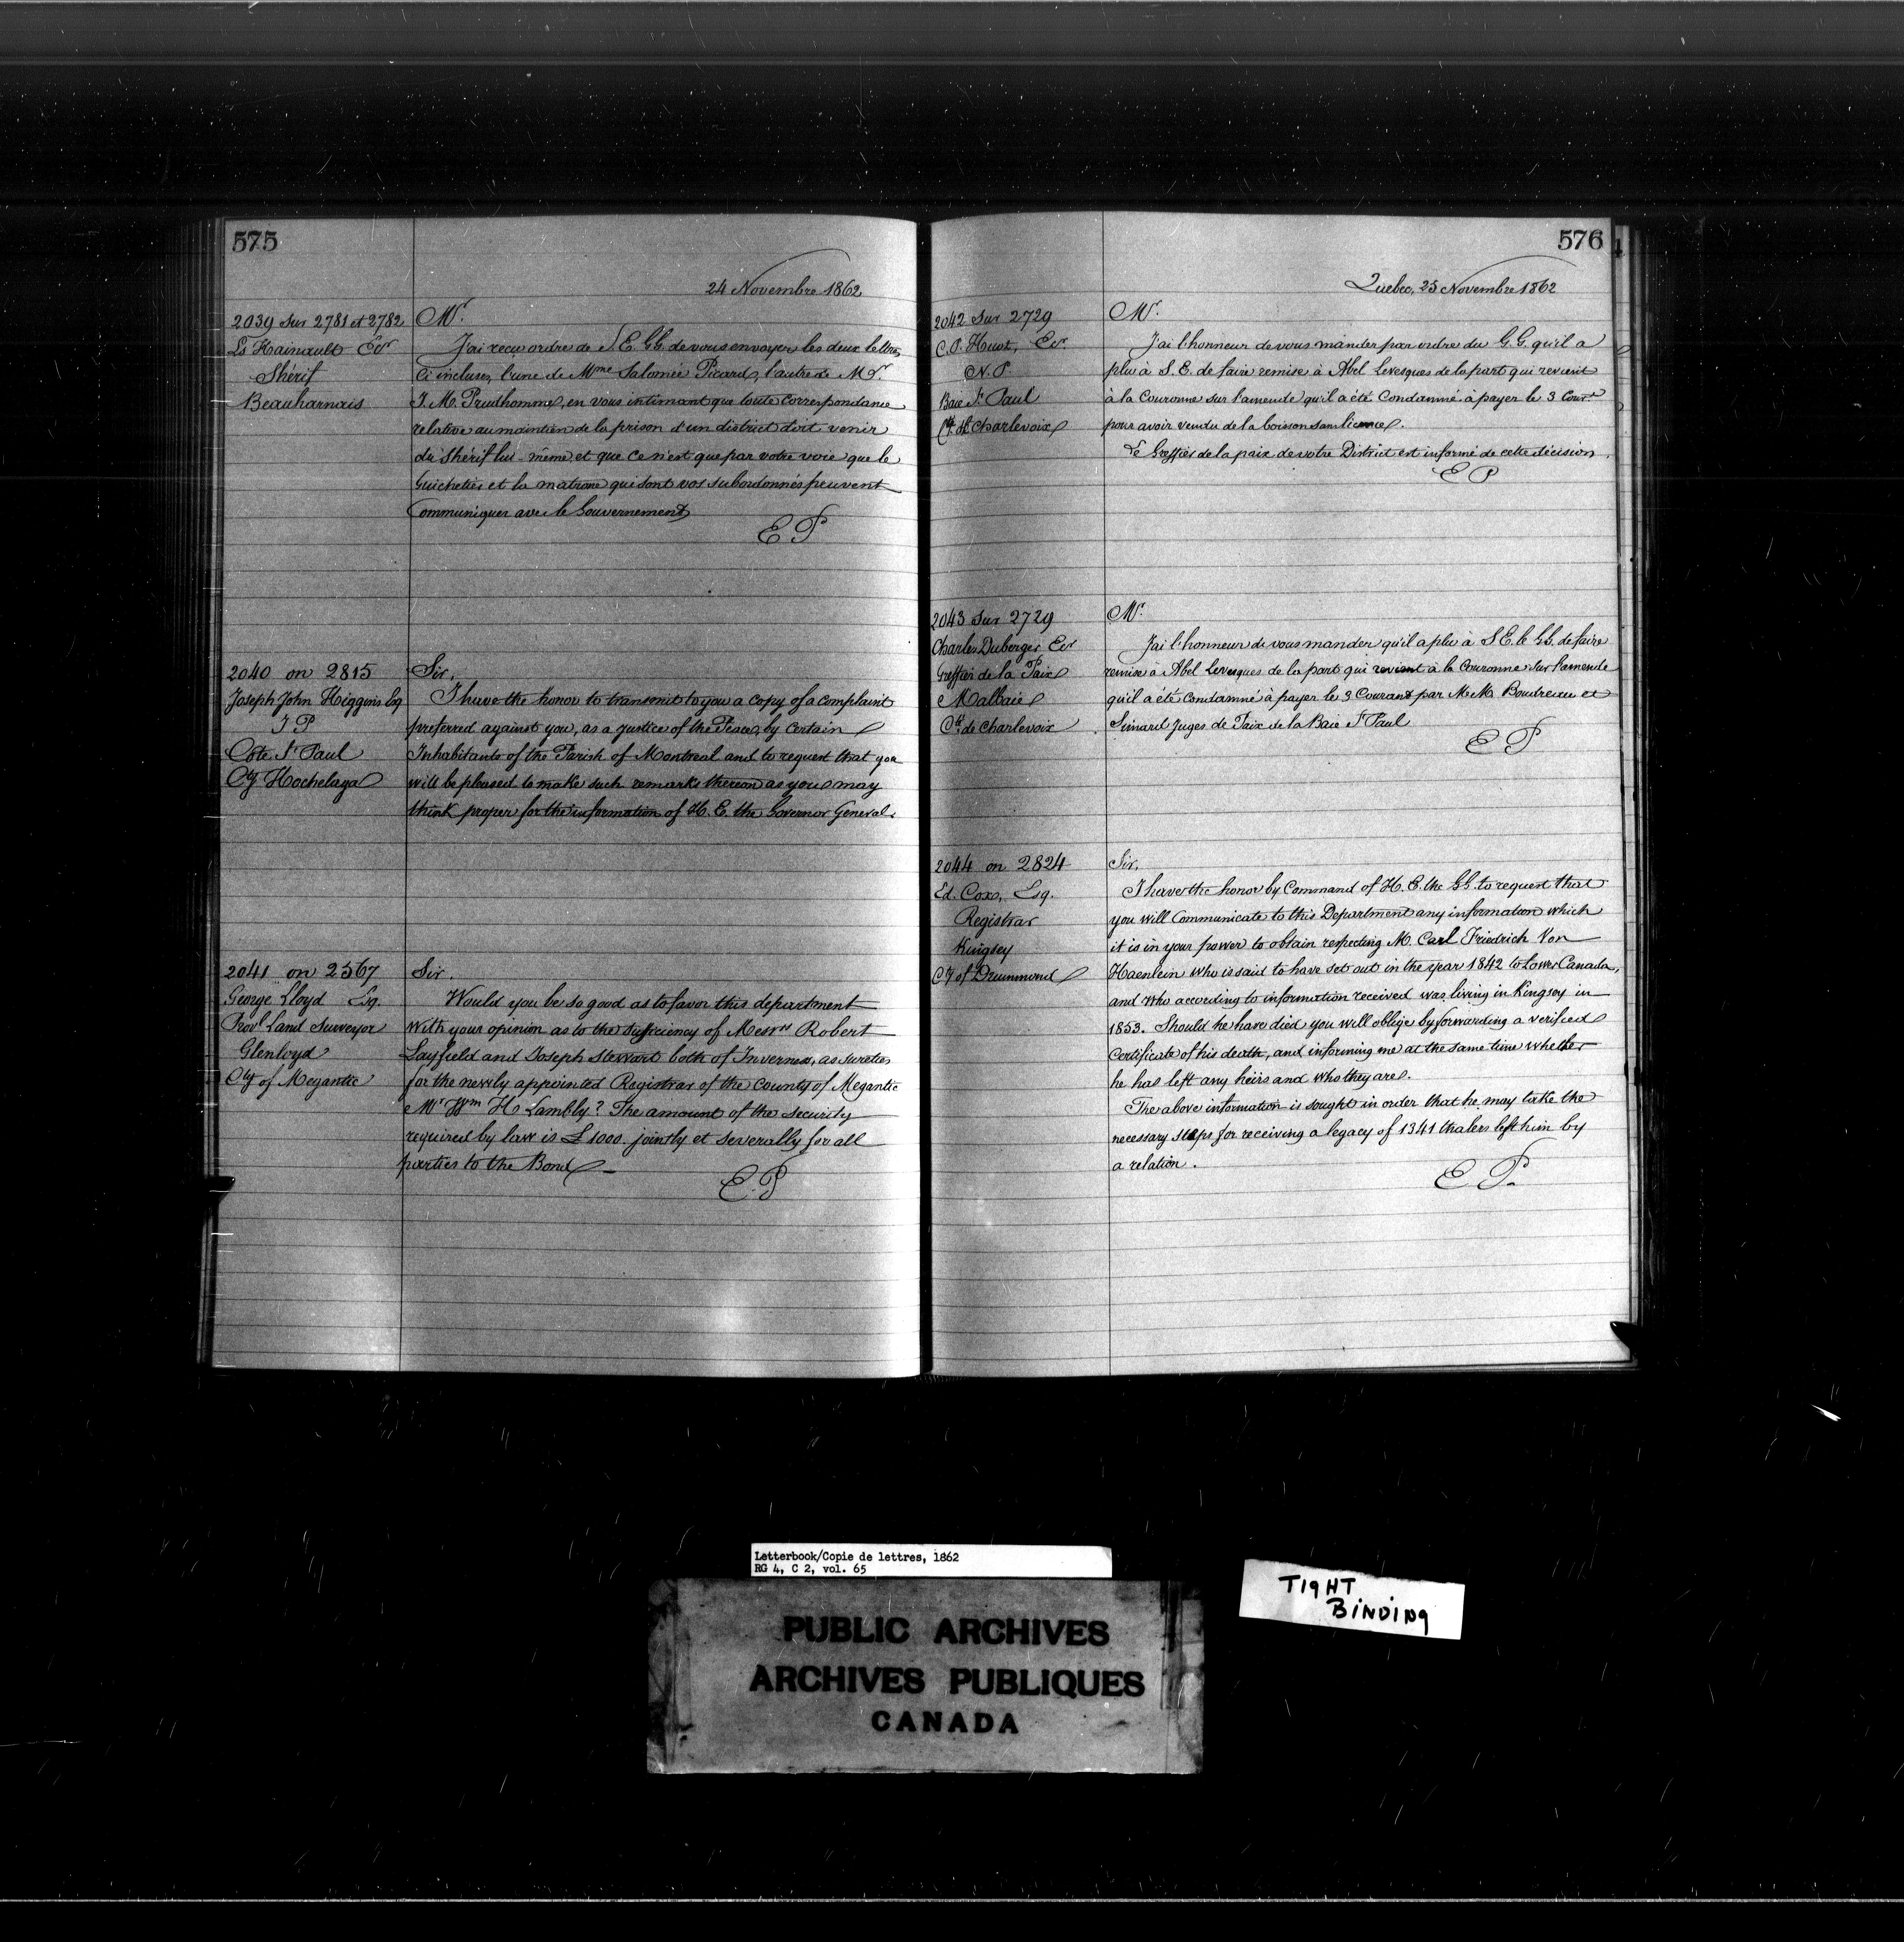 575
24 Novembre 1862
2039 sur 2781 et 2782
Ls Hainault Ecr
Shérif
Beauharnais
Mr.
J'ai reçu ordre de S. E. GG. de vous envoyer les deux lettres
Ci incluses, l'une de Mme Salomée Picard, l'autre de Mr.
J. M. Prudhomme, en vous intimant que toute correspondance
relative au maintien de la prison d'un district doit venir
du Shérif lui-même et que ce n'est que par votre voie que le
Guichetier et la matrone qui sont vos subordonnés peuvent
Communiquer avec le Gouvernement
E P
2040 on 2815
Joseph John Higgins Esq
J P
Côte St Paul
Cty Hochelaga
Sir,
I have the honor to transmit to you a copy of a complaint
preferred against you, as a Justice of the Peace, by certain
Inhabitants of the Parish of Montreal and to request that you
will be pleased to make such remarks thereon as you may
think proper for the information of H. E. the Governor General.
2041 on 2567
George Lloyd Esq.
Provl Land Surveyor
Glenloyd
Cty of Megantic
Sir.
Would you be so good as to favor this department
With your opinion as to the sufficiency of Messrs Robert
Layfield and Joseph Stewart both of Inverness, as sureties
for the newly appointed Registrar of the county of Megantic
Mr Wm H Lambly? The amount of the security
required by law is £1000. jointly et severally for all
parties to the Bond —
E. P
576
Quebec, 25 Novembre 1862
2042 Sur 2729
C. O. Huot, Ecr.
N. P
Baie St Paul
Ct. de Charlevoix
Mr.
J'ai l'honneur de vous mander par ordre du G. G. qu'il a
plu à S. E. de faire remise à Abel Levesques de la part qui revient
à la Couronne sur l'amende qu'il a été Condamné à payer le 3 Cour.t
pour avoir vendu de la boisson sans licence.
Le Greffier de la paix de votre District est informé de cette décision.
E P
2043 Sur 2729
Charles Duberger Ecr
Greffier de la Paix
Malbaie
Ct. de Charlevoix
Mr.
J'ai l'honneur de vous mander qu'il a plu à S E. le GG. de faire
remise à Abel Levesques de la part qui revient à la Couronne sur l'amende
qu'il a été condamné à payer le 3 Courant par M M. Boudreau et
Simard Juges de Paix de la Baie St Paul
E P
2044 on 2824
Ed. Cox, Esq.
Registrar
Kingsey
Cty of Drummond
Sir,
I have the honor by Command of H. E. the GG. to request that
you will Communicate to this Department any information which
it is in your power to obtain respecting M. Carl Friedrich Von
Haenlein who is said to have set out in the year 1842 to Lower Canada,
and who according to information received was living in Kingsey in
1853. Should he have died you will oblige by forwarding a verified
certificate of his death, and informing me at the same time whether
he has left any heirs and who they are.
The above information is sought in order that he may take the
necessary steps for receiving a legacy of 1341 thalers left him by
a relation.
E P.
Letterbook/Copie de lettres, 1862
RG 4, C 2, vol. 65
TIGHT
BINDING
PUBLIC ARCHIVES
ARCHIVES PUBLIQUES
CANADA